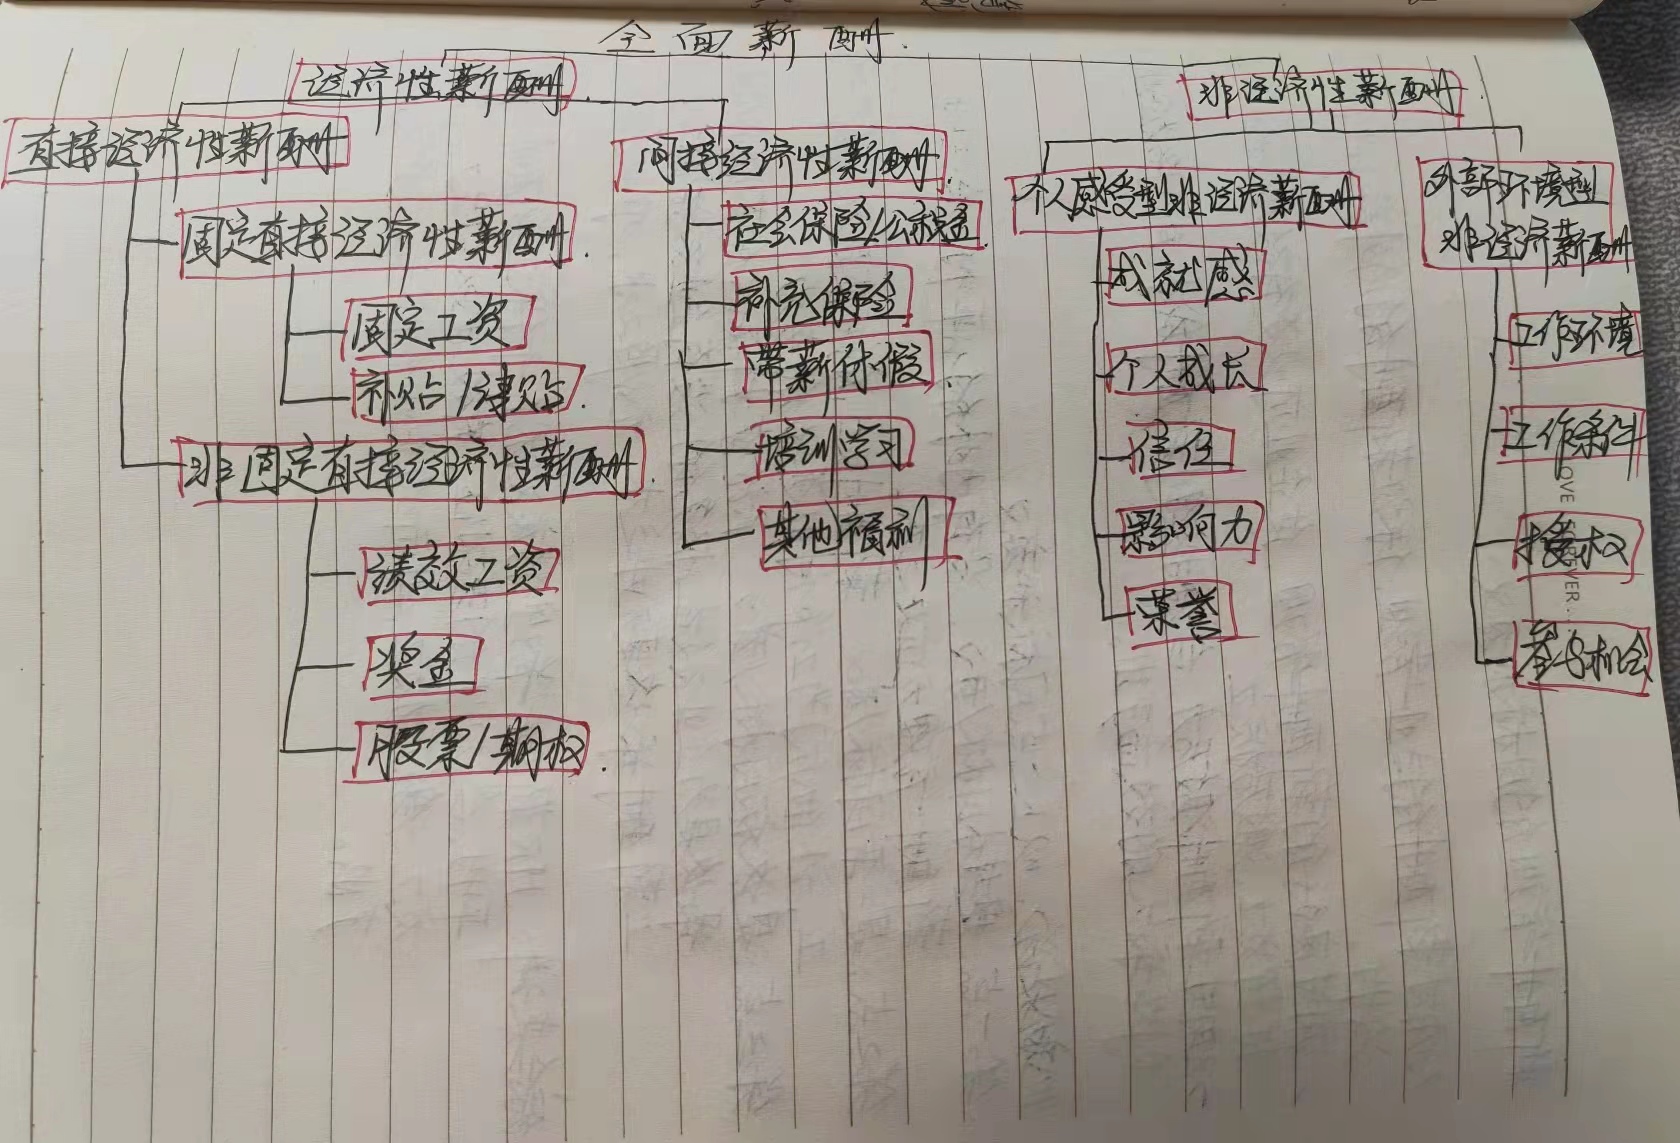 全面薪酬.
经济性薪酬.
非经济性薪酬.
直接经济性薪酬
固定直接经济性薪酬.
固定工资
补贴/津贴.
非固定直接经济性薪酬.
绩效工资
奖金
股票/期权.
间接经济性薪酬.
社会保险/公积金.
补充保险
带薪休假
培训学习
其他福利
个人感受型非经济薪酬
成就感
个人成长
信任
影响力
荣誉
外部环境型
非经济薪酬
工作环境
工作条件
授权
参与机会